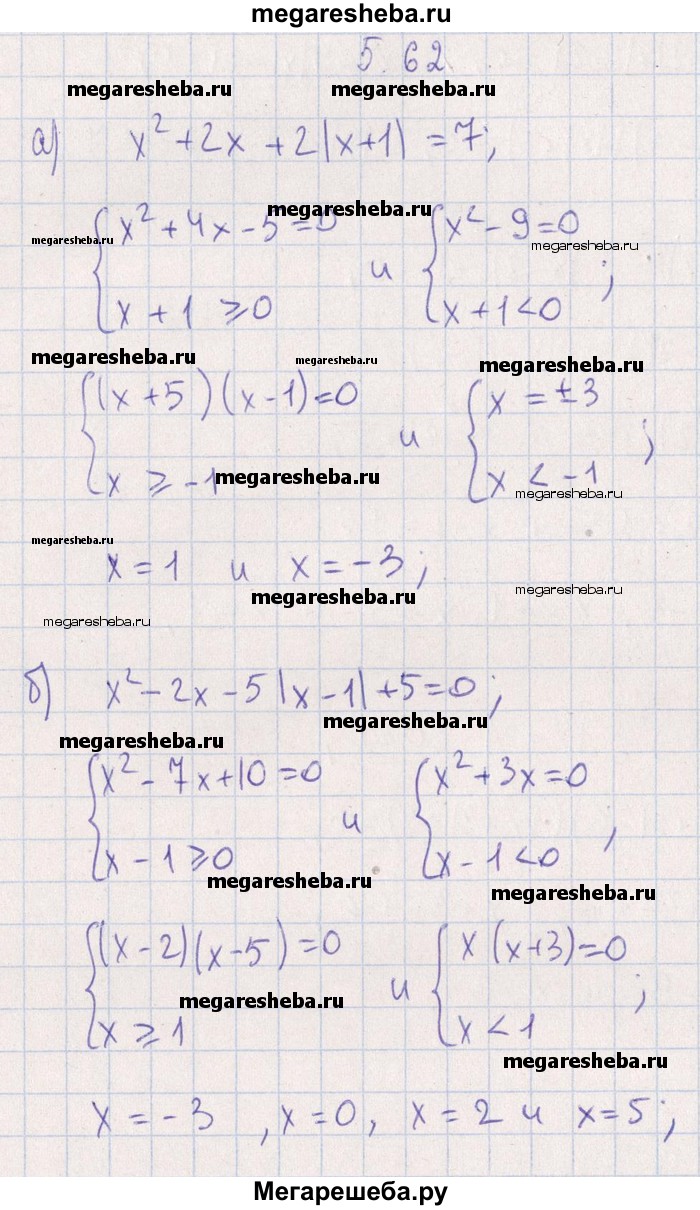 megaresheba.ru
5.62
megaresheba.ru megaresheba.ru
а) x² + 2x + 2|x+1| = 7;
megaresheba.ru
{ x² + 4x - 5 = 0 и { x² - 9 = 0 ;
megaresheba.ru megaresheba.ru
x + 1 ≥ 0 x + 1 < 0
megaresheba.ru megaresheba.ru megaresheba.ru
{ (x + 5)(x - 1) = 0 и { x = ± 3 ;
x ≥ -1 x < -1
megaresheba.ru megaresheba.ru
megaresheba.ru
x = 1 и x = -3;
megaresheba.ru megaresheba.ru
megaresheba.ru
б) x² - 2x - 5|x - 1| + 5 = 0;
megaresheba.ru
megaresheba.ru
{ x² - 7x + 10 = 0 и { x² + 3x = 0 ,
x - 1 ≥ 0 x - 1 < 0
megaresheba.ru megaresheba.ru
{ (x - 2)(x - 5) = 0 и { x (x + 3) = 0 ;
megaresheba.ru
x ≥ 1 x < 1
megaresheba.ru
x = -3 , x = 0, x = 2 и x = 5;
Мегарешеба.ру